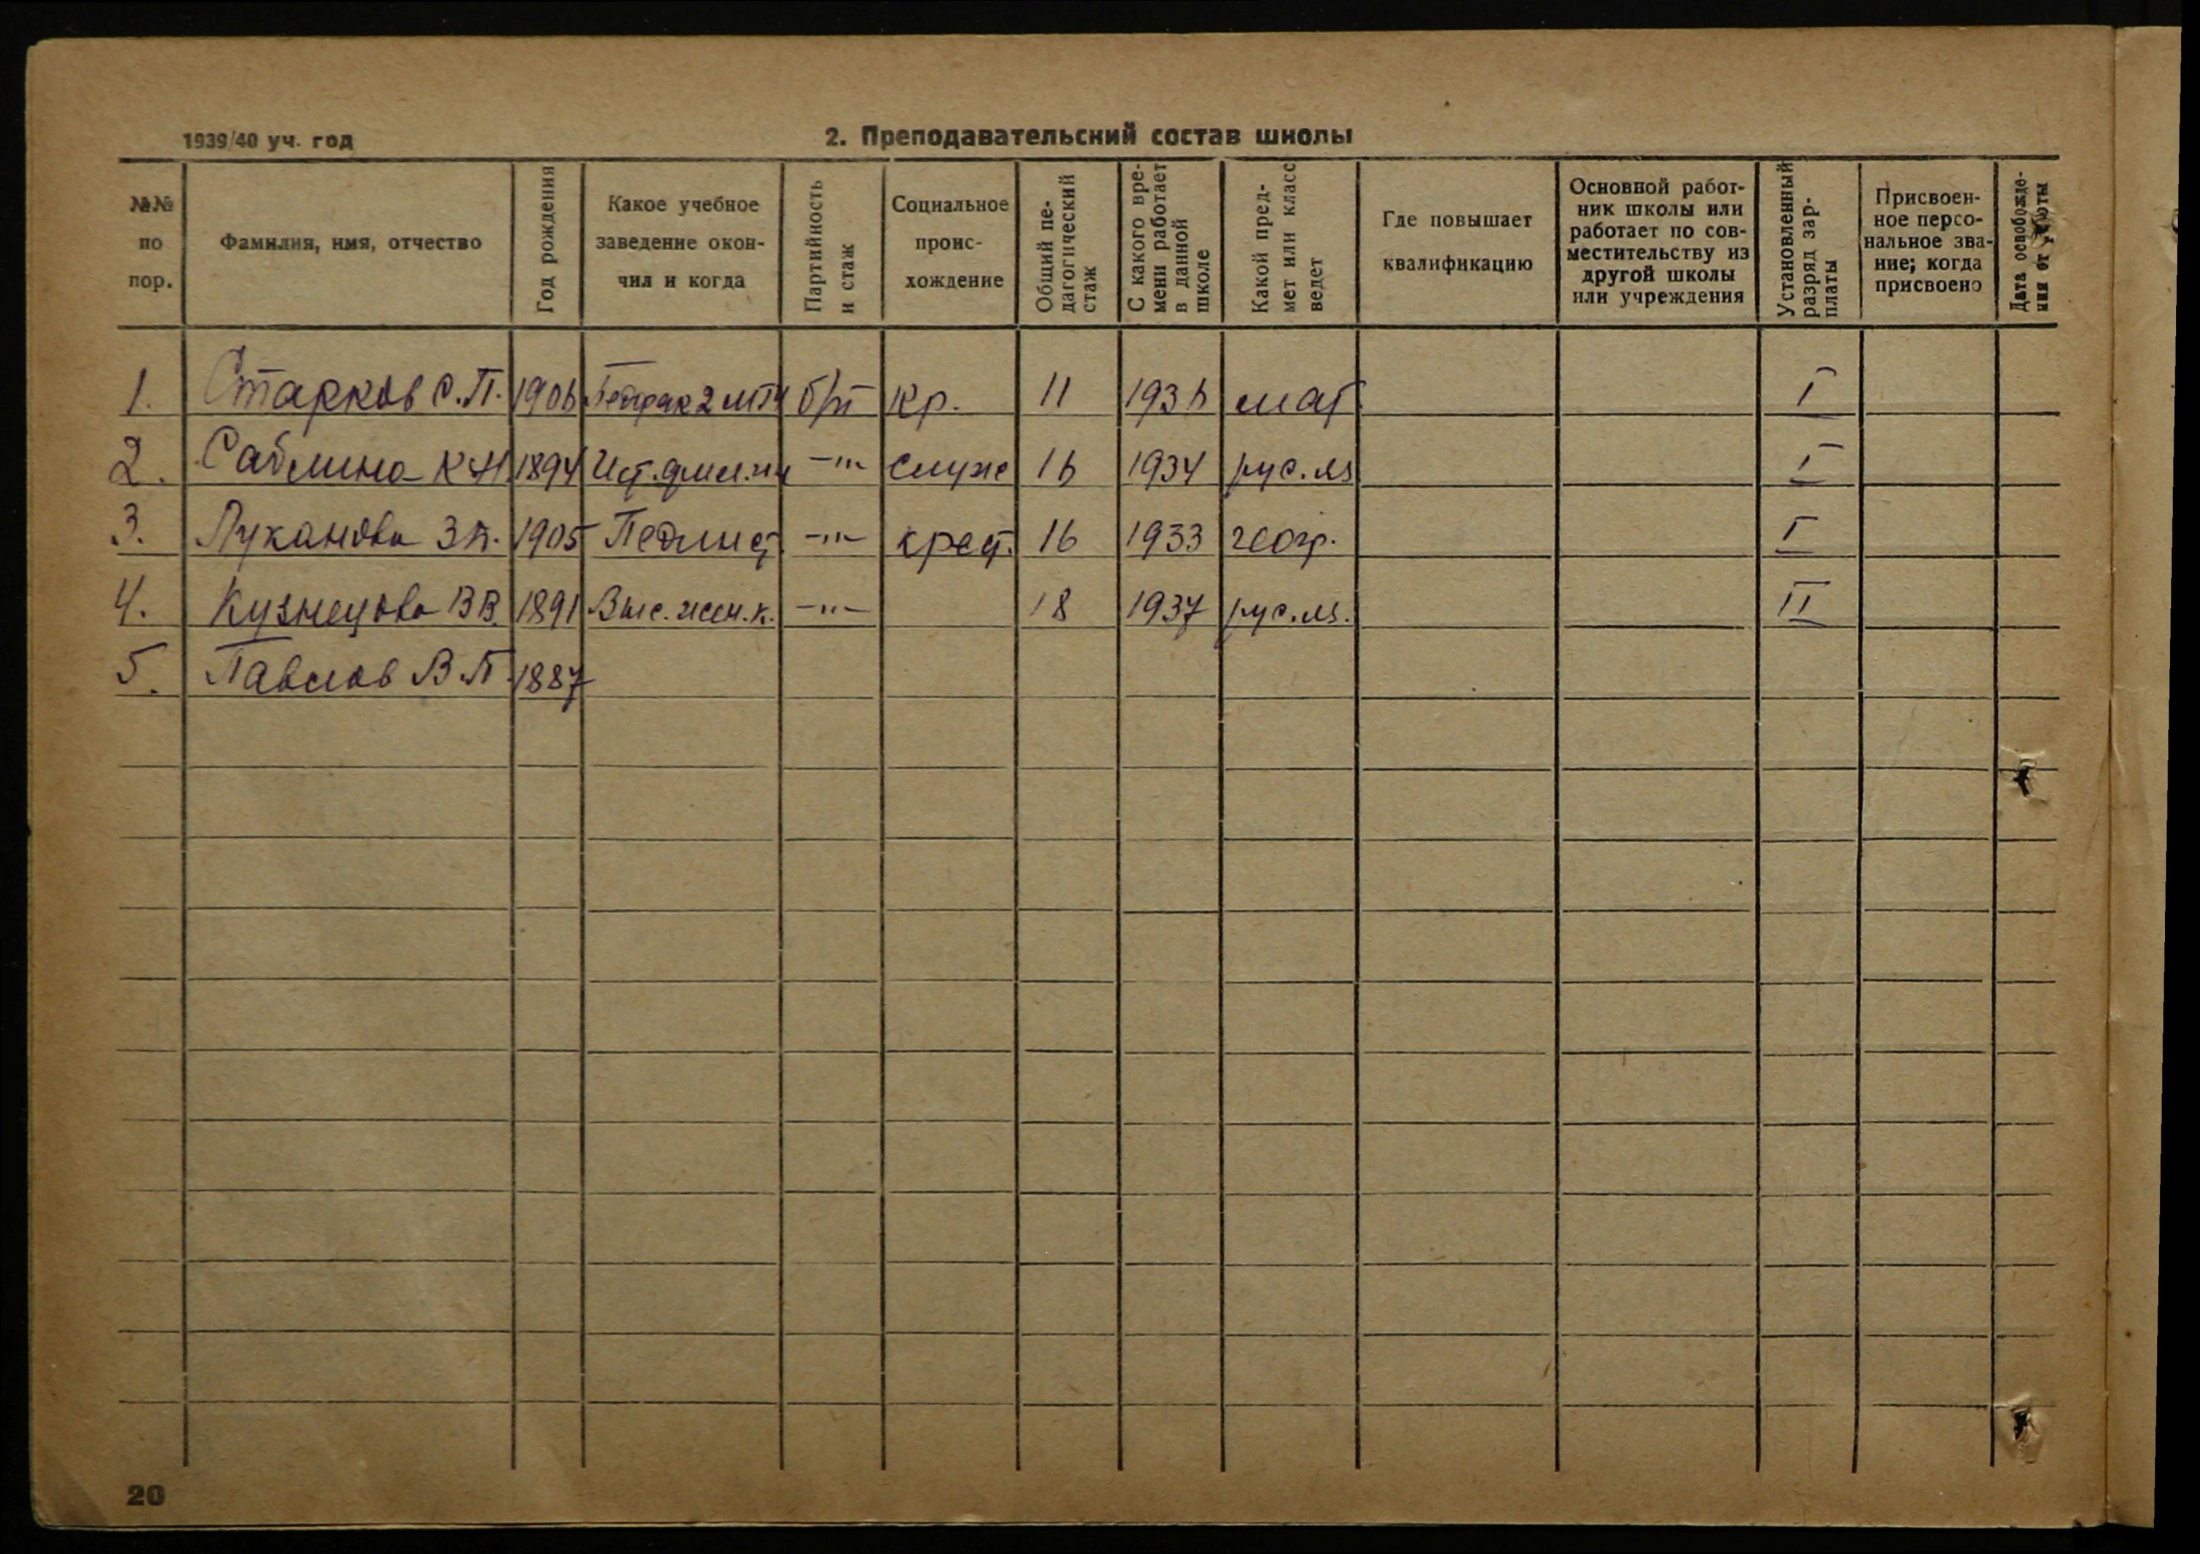 1939/40 уч. год
2. Преподавательский состав школы
№№ по пор.
Фамилия, имя, отчество
Год рождения
Какое учебное заведение окончил и когда
Партийность и стаж
Социальное происхождение
Общий педагогический стаж
С какого времени работает в данной школе
Какой предмет или класс ведет
Где повышает квалификацию
Основной работник школы или работает по совместительству из другой школы или учреждения
Установленный разряд зарплаты
Присвоенное персональное звание; когда присвоено
Дата освобождения от работы
1. Старков С.П. 1906 Педфак 2 МГУ б/п кр. 11 1936 мат I
2. Саблина К Н 1894 Ист.фил. –"– служ 16 1934 рус.яз I
3. Луканова З П. 1905 Пединст –"– крест. 16 1933 геогр. I
4. Кузнецова В В. 1891 Выс. жен. к. –"– 18 1937 рус.яз. II
5. Павлов В П. 1887
20